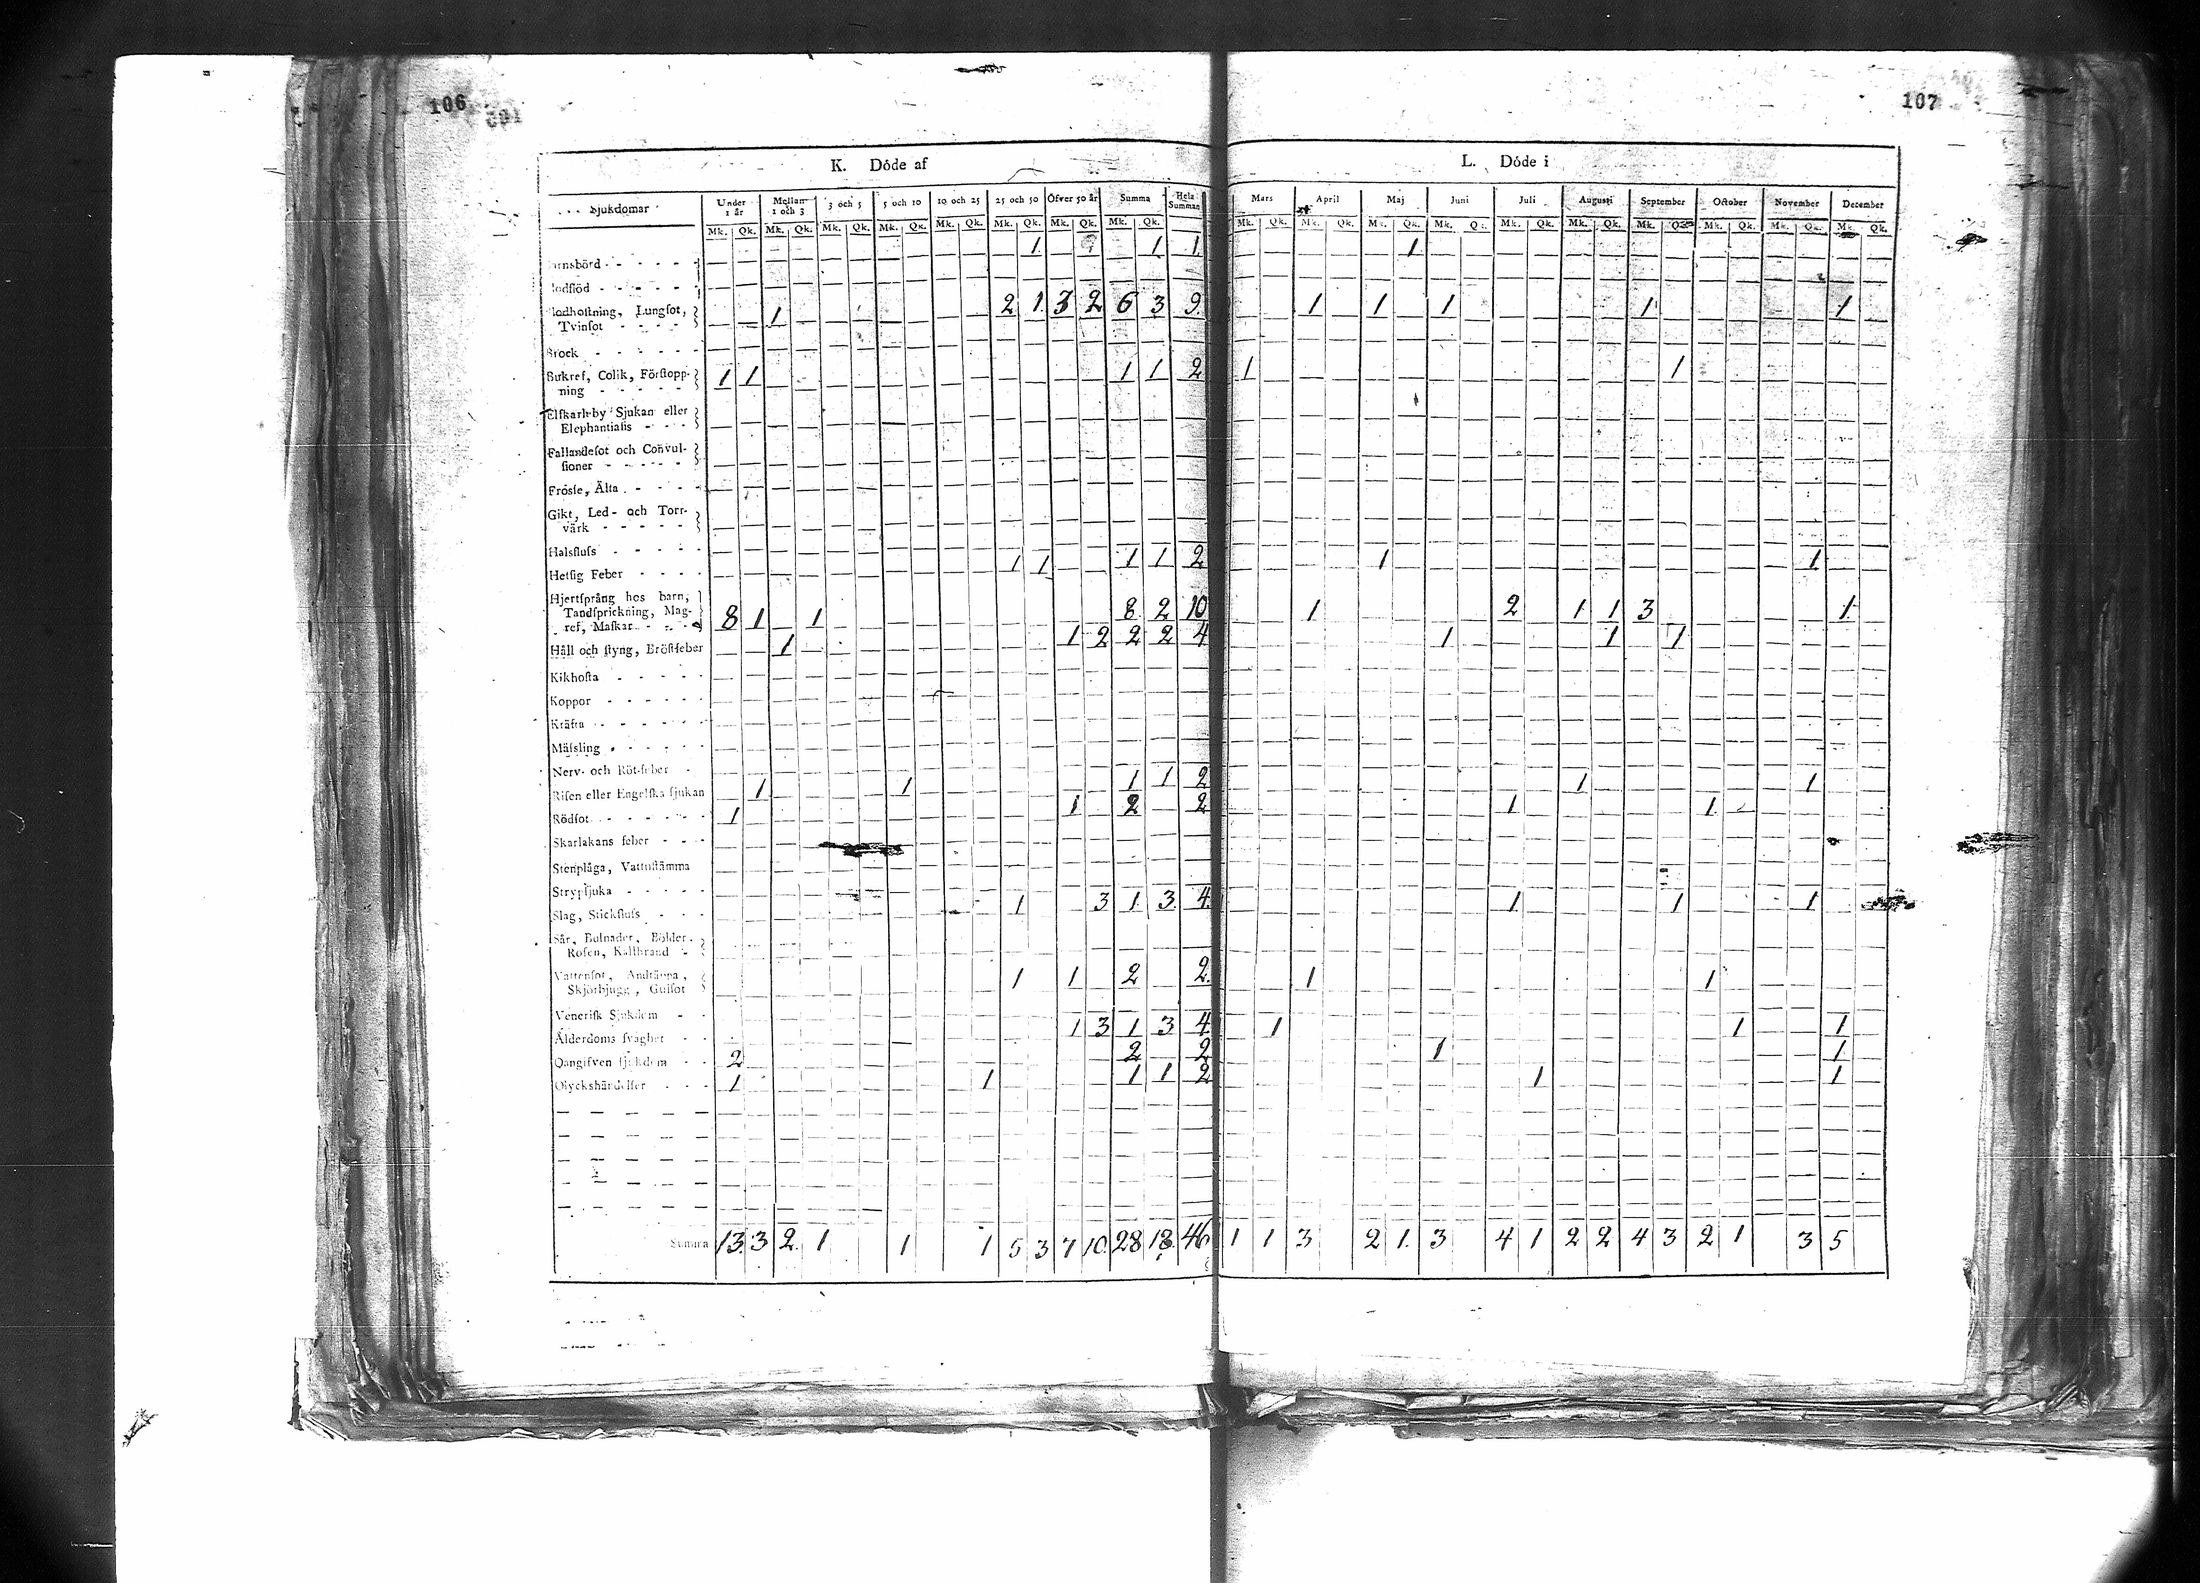 106
107
K. Döde af
L. Döde i
Sjukdomar Under 1 år Mellan 1 och 3 3 och 5 5 och 10 10 och 25 25 och 50 Öfver 50 år Summa Hela Summan
Mars April Maj Juni Juli Augusti September October November December
Mk. Qk. Mk. Qk. Mk. Qk. Mk. Qk. Mk. Qk. Mk. Qk. Mk. Qk. Mk. Qk.
Mk. Qk. Mk. Qk. Mk. Qk. Mk. Q. Mk. Qk. Mk. Qk. Mk. Mk. Qk. Mk. Qk. Mk. Qk.
arnsbörd 1 1 1 1
lodſlöd
lodhoſtning, Lungſot,
Tvinſot 1 2 1 3 2 6 3 9 1 1 1 1 1
Brock
Bukref, Colik, Förſtopp-
ning 1 1 1 1 2 1 1
Elſkarleby Sjukan eller
Elephantiaſis
Fallandeſot och Convul-
ſioner
Fröſſe, Älta
Gikt, Led- och Torr-
värk
Halsfluſs
Hetſig Feber 1 1 1 1 2 1 1
Hjertſprång hos barn,
Tandſprickning, Mag-
ref, Maſkar 8 1 1 8 2 10 1 2 1 1 3 1
Håll och ſtyng, Bröſtfeber 1 1 2 2 2 4 1 1 1
Kikhoſta
Koppor
Kräfta
Mäſsling
Nerv- och Röt-feber
Riſen eller Engelſka ſjukan 1 1 1 1 2 1 1
Rödſot 1 1 2 2 1 1
Skarlakans feber
Stenplåga, Vattuſtämma
Strypſjuka
Slag, Stickfluſs 1 3 1 3 4 1 1 1
Sår, Bulnader, Bölder
Roſen, Kallbrand
Vattenſot, Andtäppa,
Skjörbjugg, Gulſot 1 1 2 2 1 1
Veneriſk Sjukdom
Ålderdoms ſvaghet 1 3 1 3 4 1 1 1
Oangifven ſjukdom 2 2 2 1 1
Olyckshändelſer 1 1 1 1 2 1 1
Summa 13 3 2 1 1 1 5 3 7 10 28 18 46 1 1 3 2 1 3 4 1 2 2 4 3 2 1 3 5